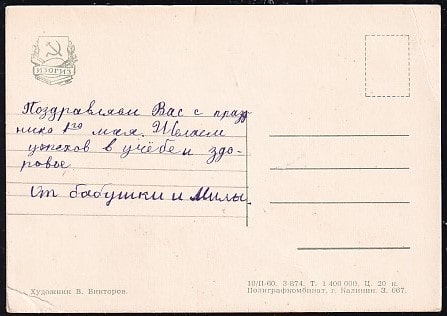 ИЗОГИЗ
Поздравляем Вас с празд
нико 1го мая. Желаем
успехов в учёбе и здо-
ровье.
От бабушки и Милы.
Художник В. Викторов.
10/II-60. З-874. Т. 1 400 000. Ц. 20 к.
Полиграфкомбинат, г. Калинин. З. 667.